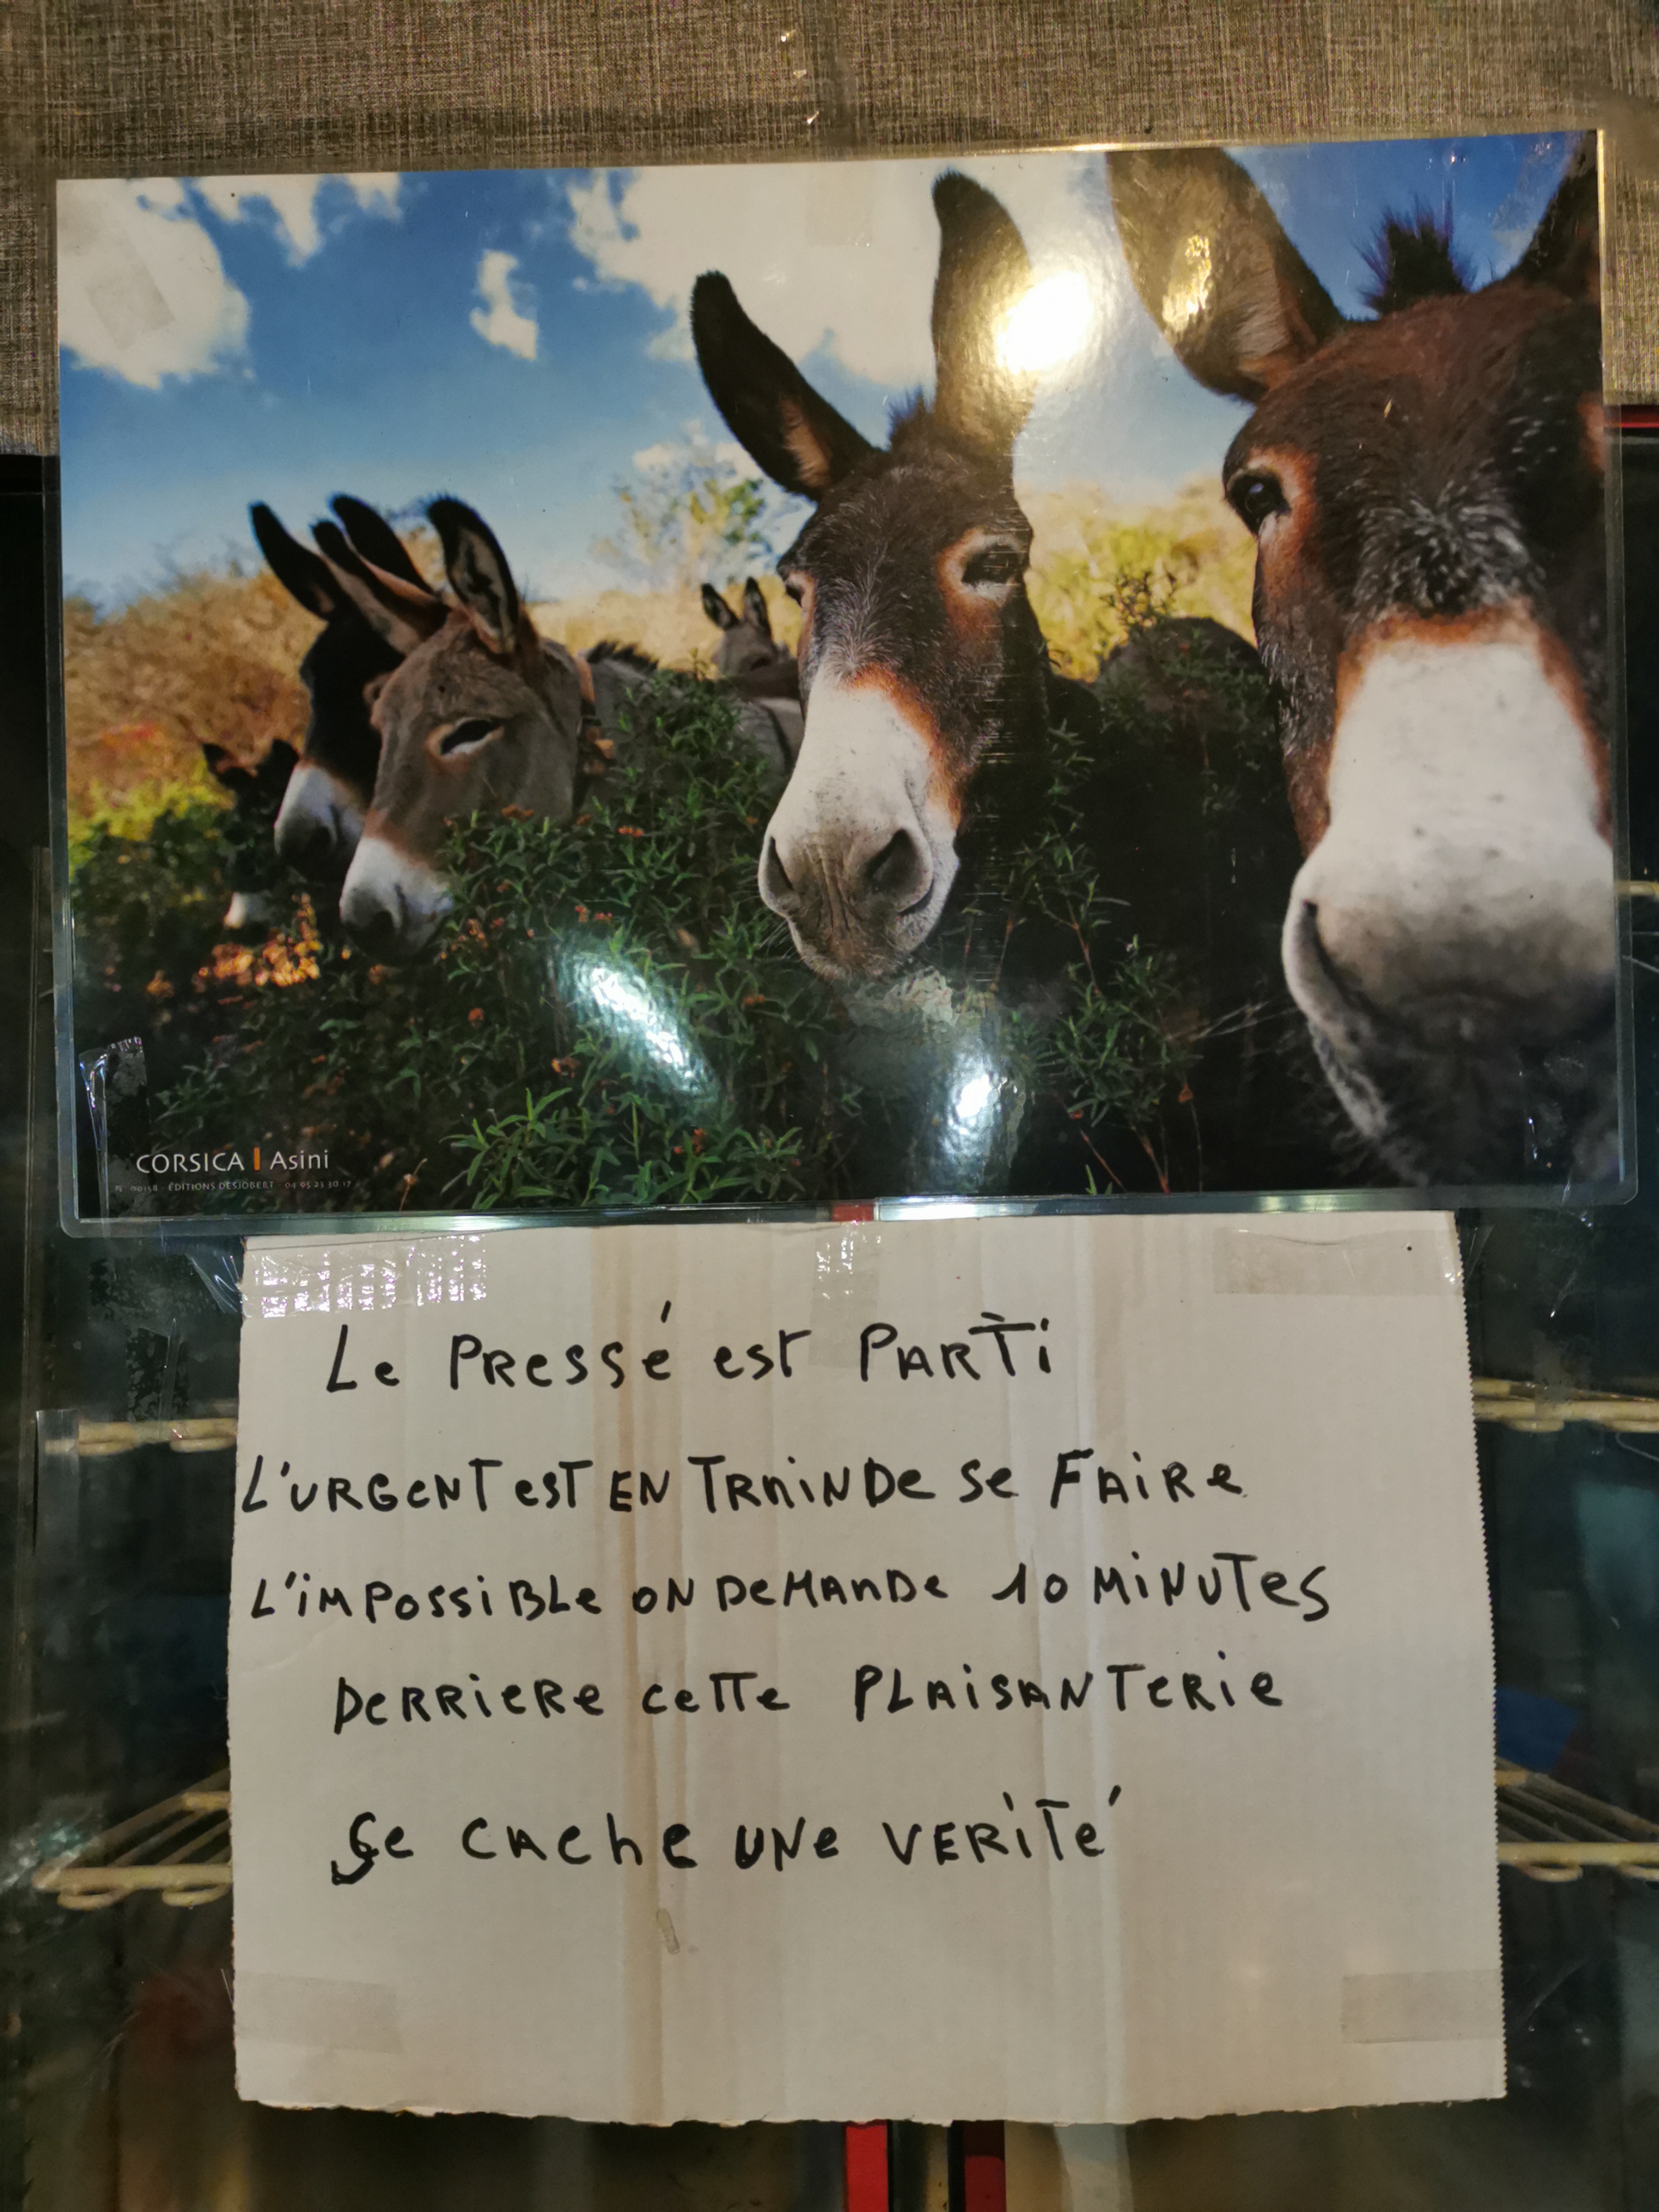 CORSICA | Asini
ÉDITIONS DESJOBERT - 04 95 23 30 17
Le Pressé est PARTi
L'URGeNT esT EN TRAiN De Se FAiRe
L'iMPossiBLe ON DeMANDe 10 MiNUTes
DeRRieRe ceTTe PLAiSANTeRie
Se CAche UNe VERiTé